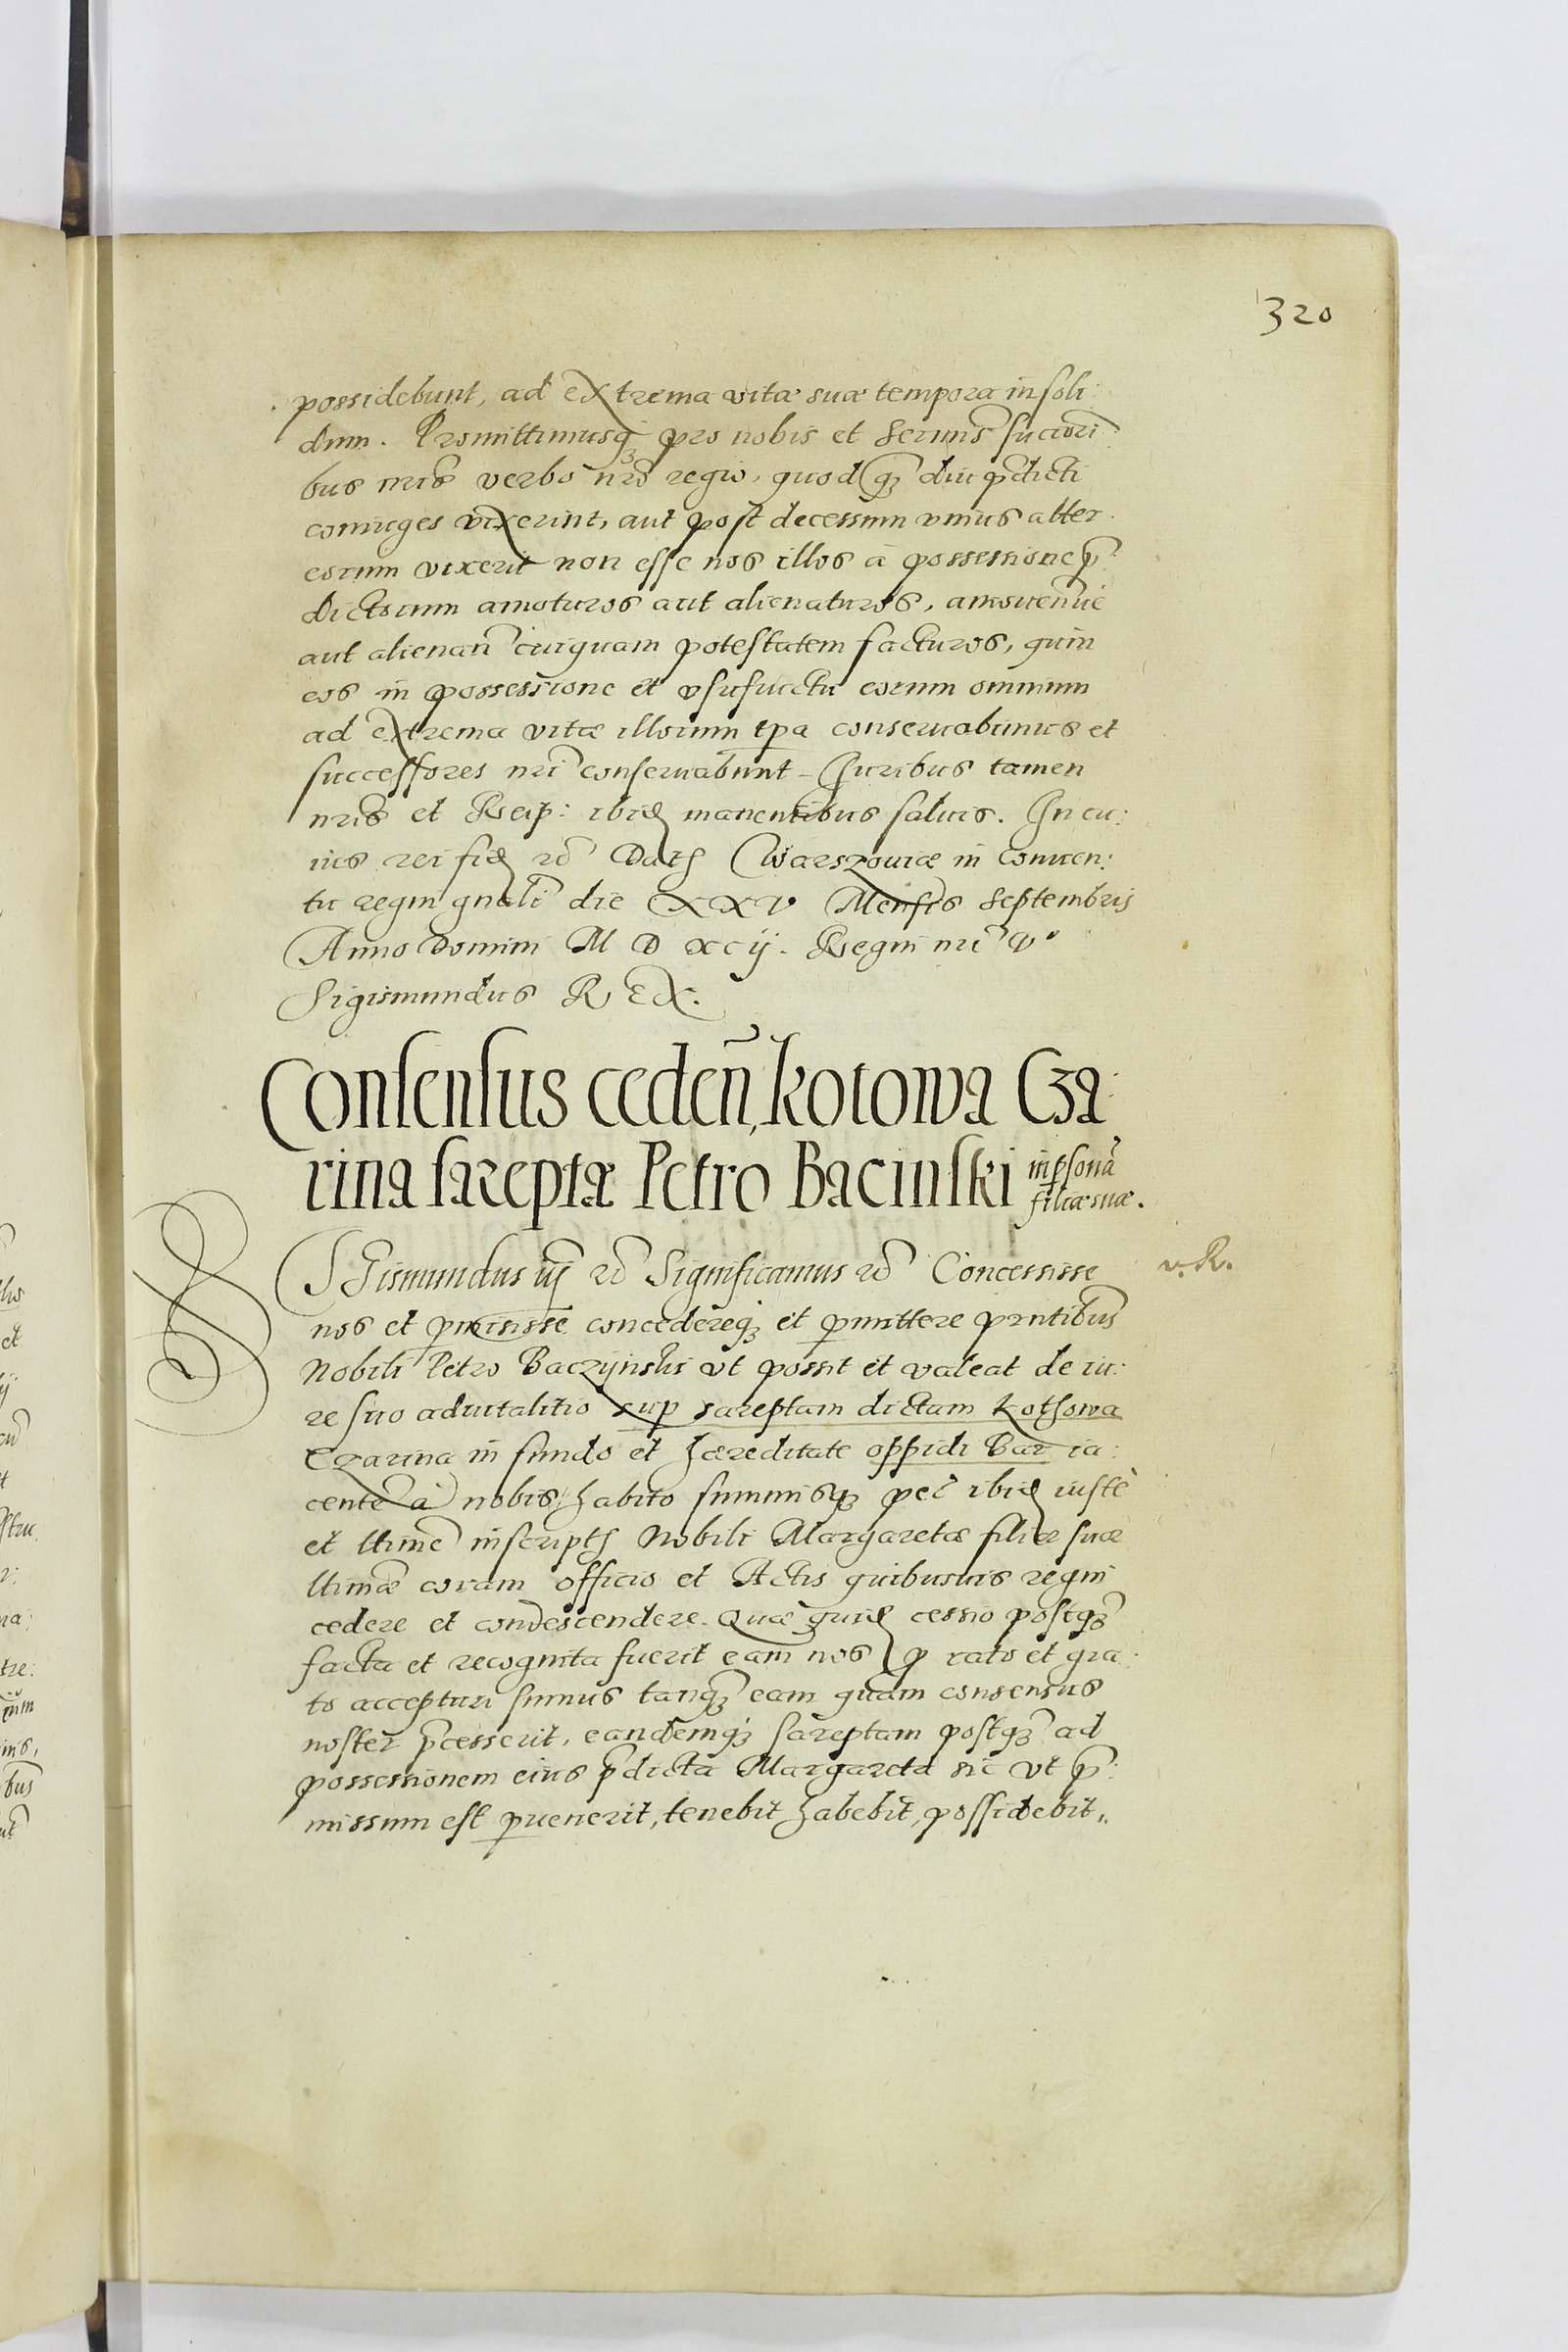 320
possidebunt, ad extrema vitæ suæ tempora in soli:
dum. Promittimusq̃ pro nobis et Sermis̃ succori
bus nris̃ verbo nr̃o regio, quod q̃ diu p̃dicti
coniuges vixerint, aut post decessum vnius alter
eorum vixerit non esse nos illos à possessione p̃
dictorum amoturos aut alienaturos, amouen̄ue
aut alienan̄ cuiquam potestatem facturos, quin
eos in possessione et vsufructu eorum omnium
ad extrema vitæ illorum tp̄a conseruabimus et
successores nri̇̃ conseruabunt. Juribus tamen
nris̃ et Reip: ibid. manentibus saluis. In cu:
ius rei fid. rc̃ Dat. Warszouiæ in Conuen:
tu regni gnali̇̃ die XXV Mensis Septembris
Anno Domini M D xcij. Regni nri̇̃ V°
Sigismundus REX.
Consensus ceden̄, Kotowa Cza:
rina sareptæ Petro Bacinski in p̱sonā
filiæ suæ.
SIGismundus iij rc̃ Significamus rc̃ Concessisse
v. R.
nos et p̱misisse concedereq̃ et p̱mittere p̃ntibus
Nobili Petro Baczijnski vt possit et valeat de iu:
re suo aduitalitio sup̱ sareptam dictam Kothowa
Czarina in fundo et hæreditate oppidi Bar ia:
cente à nobis habito summisq̃ pec̃ ibid. iustè
et ltimẽ inscript. Nobili Margaretæ filiæ suæ
ltimæ coram officio et Actis quibusuis regni
cedere et condescendere. Quæ quid. cessio postq̃
facta et recognita fuerit eam nos p̱ rato et gra:
to accepturi sumus tanq̃ eam quam consensus
noster p̃cesserit, eandemq̃ sareptam postq̃ ad
possessionem eius p̃dicta Margareta sic vt p̃:
missum est p̱uenerit, tenebit habebit, possidebit,